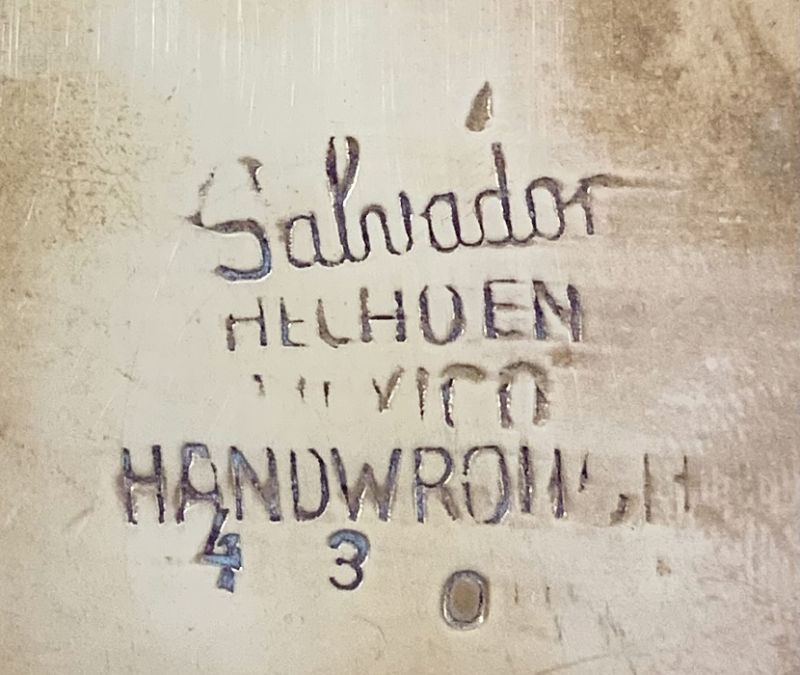 Salvador
HECHO EN
MEXICO
HANDWROUGH
4 3 0